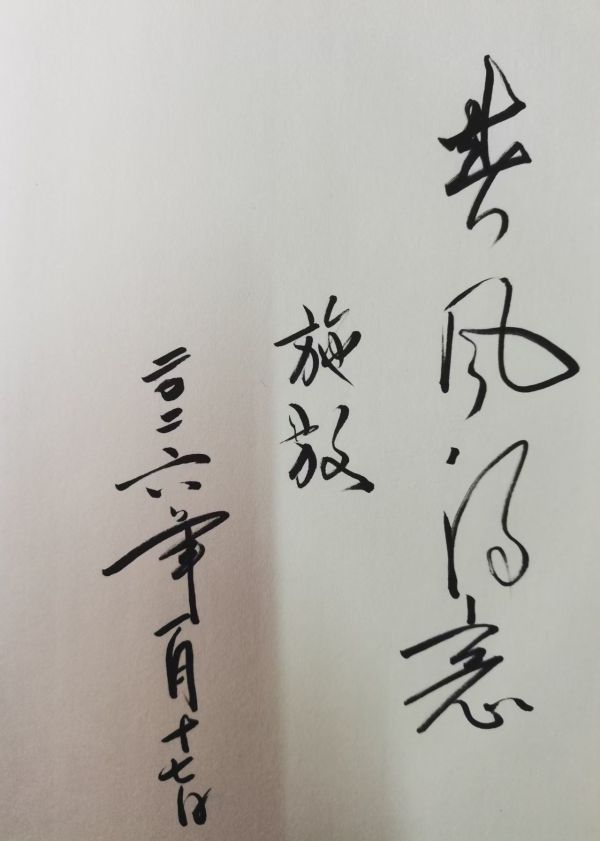 春风得意
施放
二〇二六年一月十七日